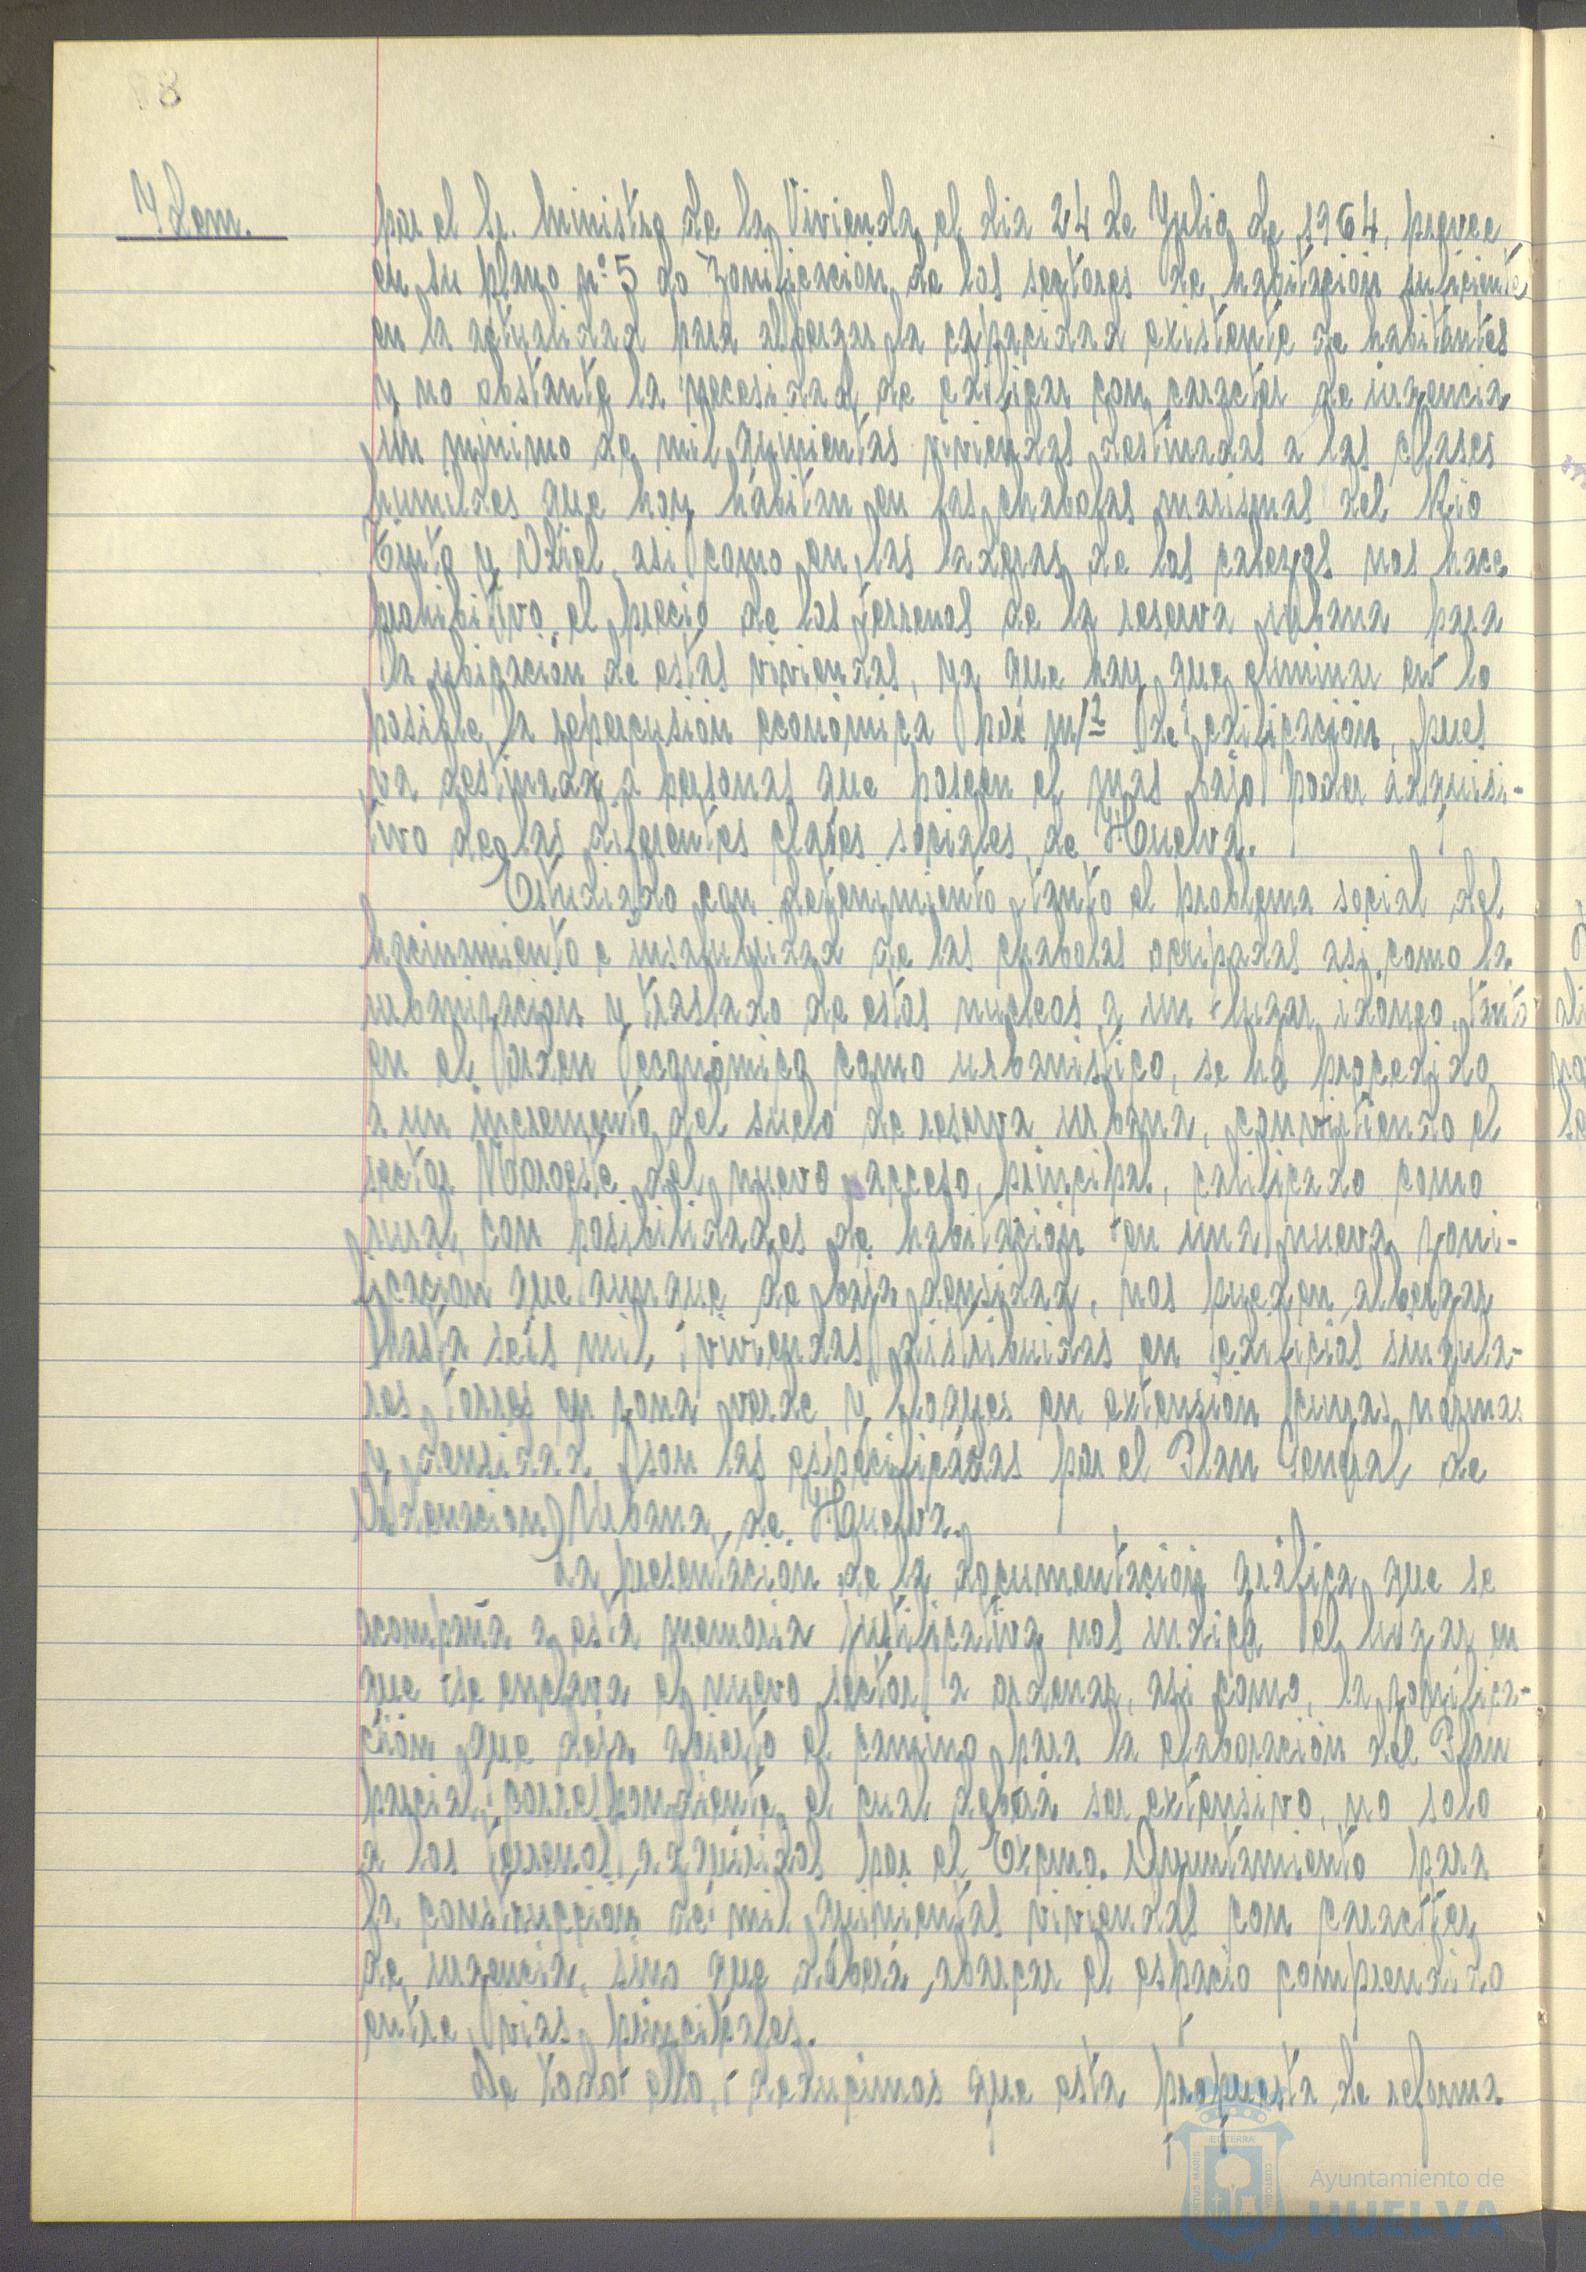 8
Ydem.
por el Sr. Ministro de la Vivienda el dia 24 de Julio de 1964, prevee
en su plano nº 5 de Zonificación de los sectores de habitación suficiente
en la actualidad para albergar la capacidad existente de habitantes
y no obstante la necesidad de edificar con caracter de urgencia
un minimo de mil quinientas viviendas destinadas a las clases
humildes que hoy habitan en las chabolas marismas del Rio
Tinto y Odiel, asi como en las laderas de los cabezos nos hace
prohibitivo el precio de los terrenos de la reserva urbana para
la ubicación de estas viviendas, ya que hay que eliminar en lo
posible la repercusión económica por m/2 de edificación, pues
va destinada a personas que poseen el mas bajo poder adquisi-
tivo de las diferentes clases sociales de Huelva.
Estudiado con detenimiento tanto el problema social del
hacinamiento e insalubridad de las chabolas ocupadas asi como la
urbanización y traslado de estos nucleos a un lugar idoneo, tanto
en el orden económico como urbanistico, se ha procedido
a un incremento del suelo de reserva urbana, convirtiendo el
sector Noroeste del nuevo acceso principal, calificado como
rural con posibilidades de habitación en una nueva zoni-
ficación que aunque de baja densidad, nos pueden albergar
hasta seis mil viviendas distribuidas en edificios singula-
res, torres en zona verde y bloques en extensión cuyas normas
y densidad son las especificadas por el Plan General de
Ordenación Urbana de Huelva.
La presentación de la documentación gráfica que se
acompaña a esta memoria justificativa nos indica el lugar en
que se enclava el nuevo sector a ordenar, asi como, la zonifica-
ción que deja abierto el camino para la elaboración del Plan
parcial correspondiente el cual deberá ser extensivo, no solo
a los terrenos adquiridos por el Excmo. Ayuntamiento para
la construcción de mil quinientas viviendas con caracter
de urgencia, sino que deberá abarcar el espacio comprendido
entre vias principales.
De todo ello, deducimos que esta propuesta de reforma
Ayuntamiento de
HUELVA